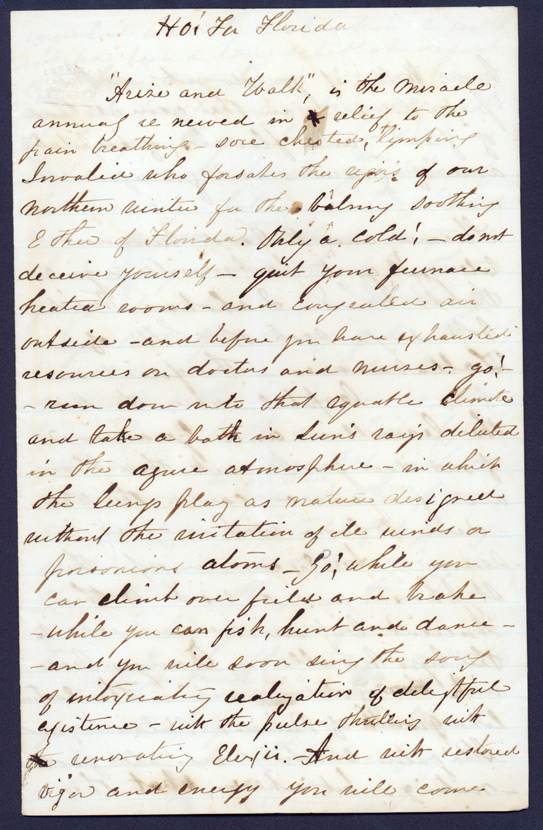 Ho! For Florida
"Arize and Walk", is the miracle
annual re newed in relief to the
pain breathing - sore chested, lymping
Invalid who forsakes the rigors of our
northern winter for the balmy soothing
Ether of Florida. Only a cold! - do not
deceive yourself - quit your furnace
heated rooms - and congealed air
outside - and before you have exhausted
resources on doctors and nurses - go!
- run down into that equable climate
and take a bath in Sun's rays diluted
in the azure atmosphere - in which
the lungs play as nature designed
without the irritation of winds or
poisonious atoms - Go! while you
can climb over field and brake
- while you can fish, hunt and dance -
- and you will soon sing the song
of intoxicating realization of delightful
existence - with the pulse thrilling with
renovating Elexir. - And with restored
vigor and energy you will come